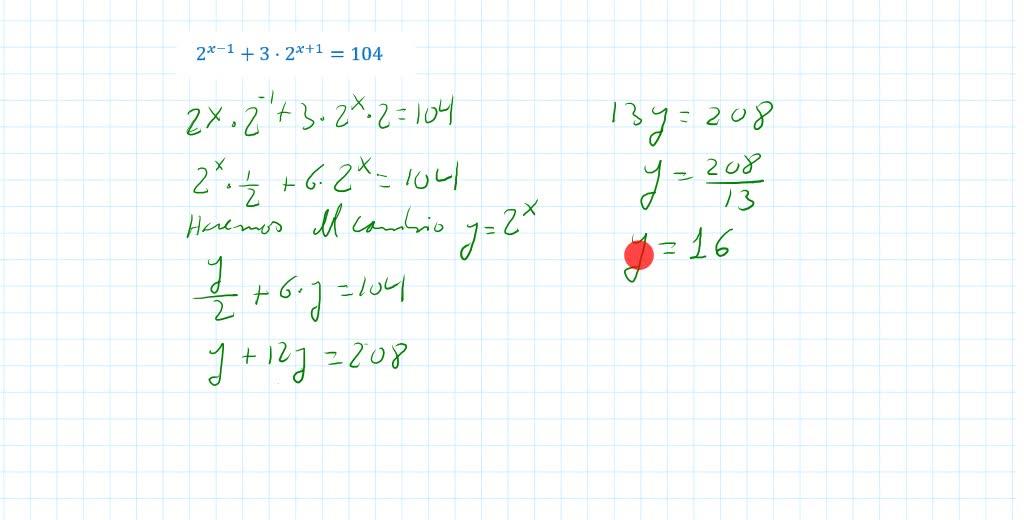 2^{x−1} + 3 · 2^{x+1} = 104
2^x · 2^{-1} + 3 · 2^x · 2 = 104
2^x · 1/2 + 6 · 2^x = 104
Haremos el cambio y = 2^x
y/2 + 6 · y = 104
y + 12y = 208
13y = 208
y = 208/13
y = 16